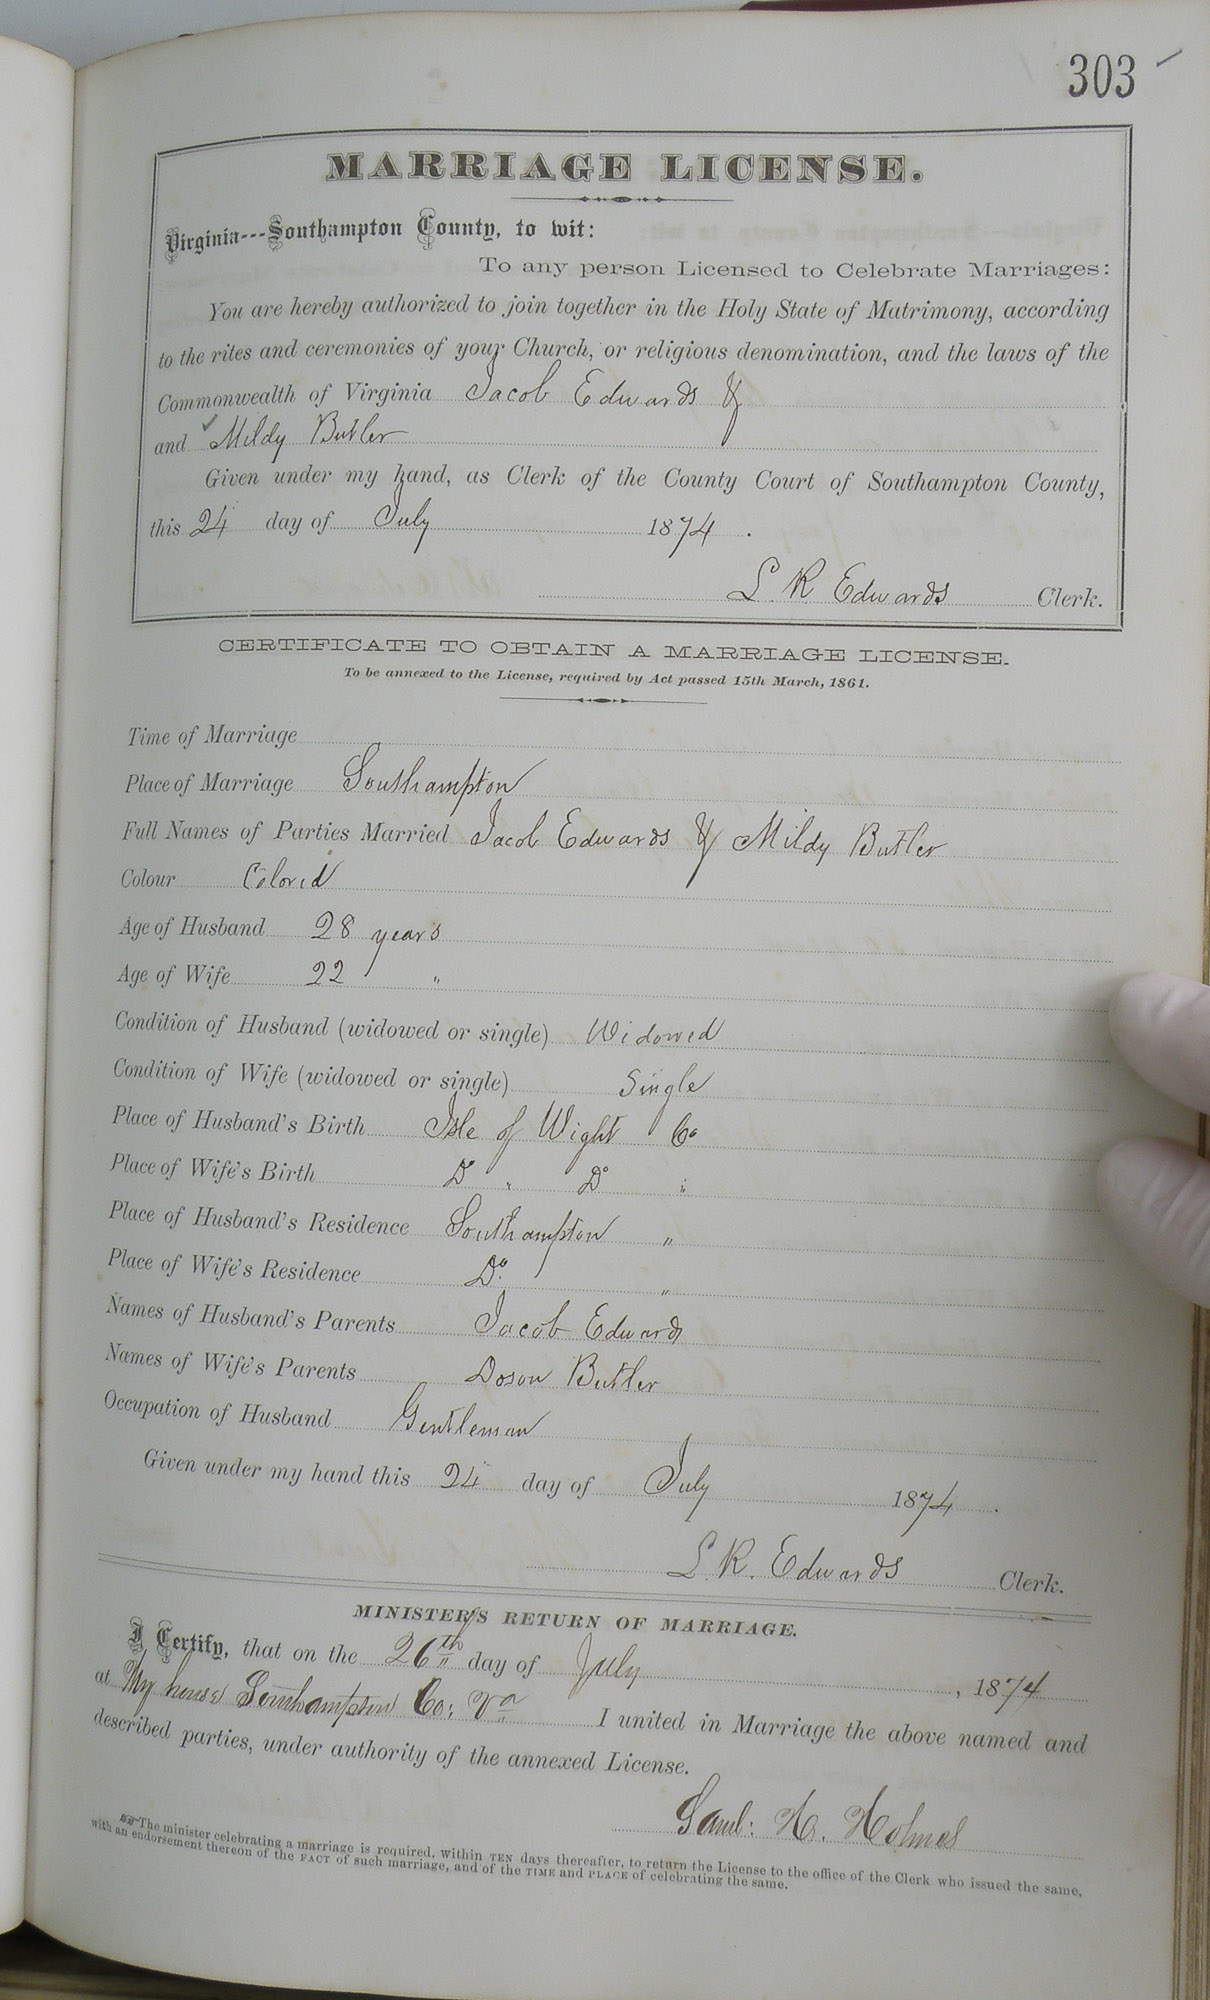 303
MARRIAGE LICENSE.
Virginia---Southampton County, to wit:
To any person Licensed to Celebrate Marriages:
You are hereby authorized to join together in the Holy State of Matrimony, according
to the rites and ceremonies of your Church, or religious denomination, and the laws of the
Commonwealth of Virginia Jacob Edwards &
and Mildy Butler
Given under my hand, as Clerk of the County Court of Southampton County,
this 24 day of July 1874.
L R Edwards Clerk.
CERTIFICATE TO OBTAIN A MARRIAGE LICENSE.
To be annexed to the License, required by Act passed 15th March, 1861.
Time of Marriage
Place of Marriage Southampton
Full Names of Parties Married Jacob Edwards & Mildy Butler
Colour Colored
Age of Husband 28 years
Age of Wife 22 "
Condition of Husband (widowed or single) Widowed
Condition of Wife (widowed or single) Single
Place of Husband's Birth Isle of Wight Co
Place of Wife's Birth Do " Do "
Place of Husband's Residence Southampton "
Place of Wife's Residence Do. "
Names of Husband's Parents Jacob Edwards
Names of Wife's Parents Doson Butler
Occupation of Husband Gentleman
Given under my hand this 24 day of July 1874.
L. R. Edwards Clerk.
MINISTER'S RETURN OF MARRIAGE.
I Certify, that on the 26th day of July, 1874
at My house Southampton Co; Va I united in Marriage the above named and
described parties, under authority of the annexed License.
Saml: H. Holmes
☞The minister celebrating a marriage is required, within TEN days thereafter, to return the License to the office of the Clerk who issued the same,
with an endorsement thereon of the FACT of such marriage, and of the TIME and PLACE of celebrating the same.